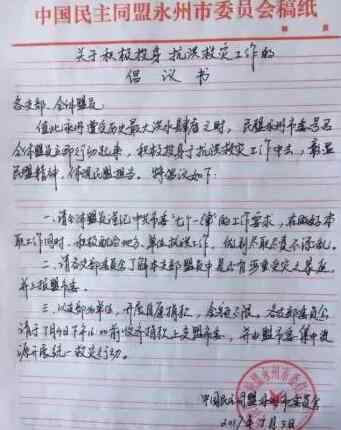 中国民主同盟永州市委员会稿纸
关于积极投身抗洪救灾工作的
倡议书
各支部、全体盟员:
值此永州遭受历史最大洪水肆虐之时,民盟永州市委号召
全体盟员立即行动起来,积极投身于抗洪救灾工作中去,彰显
民盟精神,体现民盟担当。特倡议如下:
一、请全体盟员谨记中共市委“七个一律”的工作要求,在做好本
职工作同时,积极配合地方、单位抗洪工作,做到尽职尽责不添乱。
二、请各支部委员会了解本支部盟员中是否有严重受灾之家庭,
并上报盟市委。
三、以支部为单位,开展自愿捐款,金额不限。各支部委员会
请于7月4日下午 前收齐捐款上交盟市委,并由盟市委集中资
源开展统一救灾行动。
中国民主同盟永州市委员会
2017年7月3日